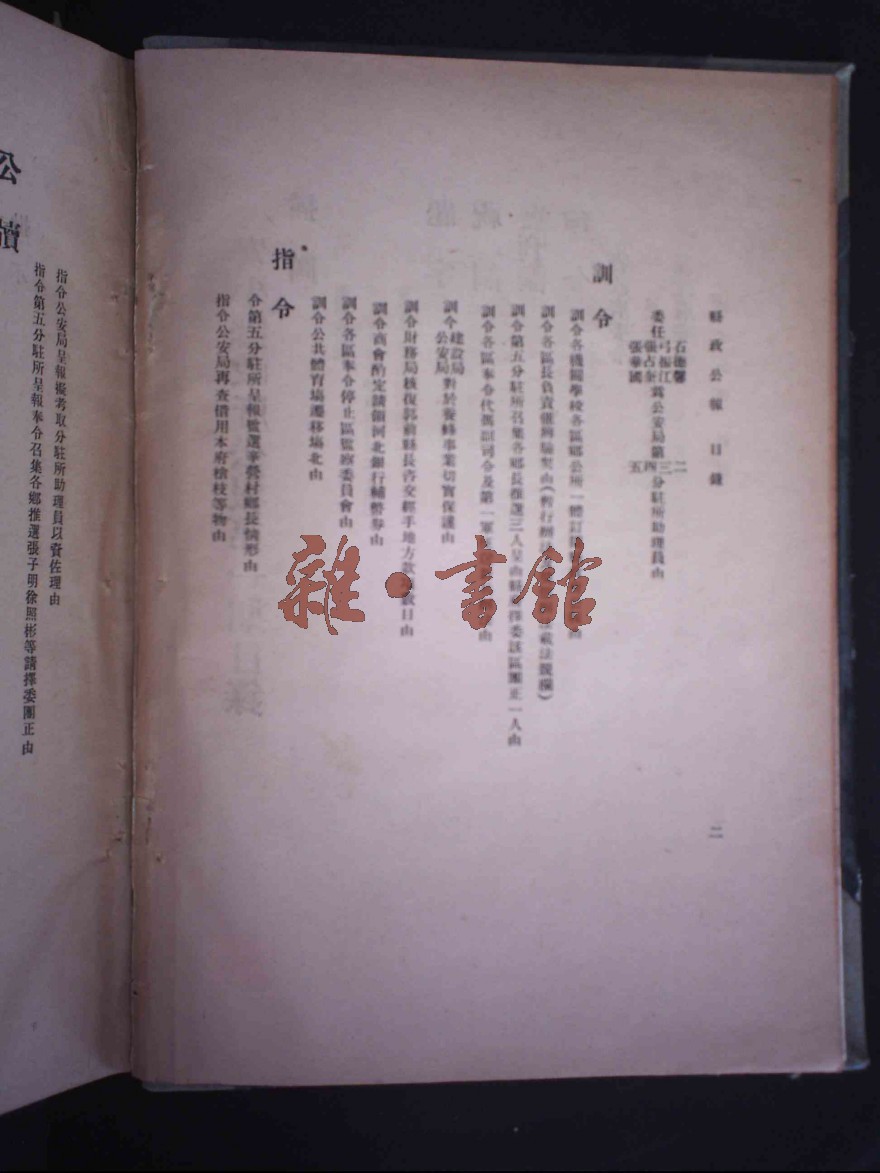 縣政公報 目錄
二
石德馨
弓振江
張占奎
張華國
委任
爲公安局第
二
三
四
五
分駐所助理員由
訓令
訓令各機關學校各區鄉公所一體訂
訓令各區長負責張
由(暫行
載法規欄)
訓令第五分駐所召集各鄉長推選三人呈
擇委該區團正一人由
訓令各區奉令代
司令及第一軍
由
訓令
建設局
公安局
對於養蜂事業切實保護由
訓令財務局核復郭前縣長咨交經手地方款
數目由
訓令商會酌定請領河北銀行輔幣券由
訓令各區奉令停止區監察委員會由
訓令公共體育場遷移場北由
指令
令第五分駐所呈報監選辛營村鄉長情形由
指令公安局再查借用本府槍枝等物由
指令公安局呈報擬考取分駐所助理員以資佐理由
指令第五分駐所呈報奉令召集各鄉推選張子明徐照彬等請擇委團正由
公牘
雜·書館